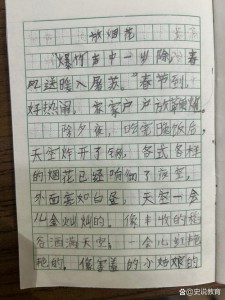 放烟花
“爆竹声中一岁除，春
风送暖入屠苏。”春节到，
好热闹，家家户户放
除夕夜，吃完晚饭后，
天空炸开了锅，各式各样
的烟花已经响彻了夜空。
外面宛如白昼，天空一会
儿金灿灿的，像丰收的稻
谷洒满天空；一会儿红艳
艳的，像害羞的小姑娘的
史说教育